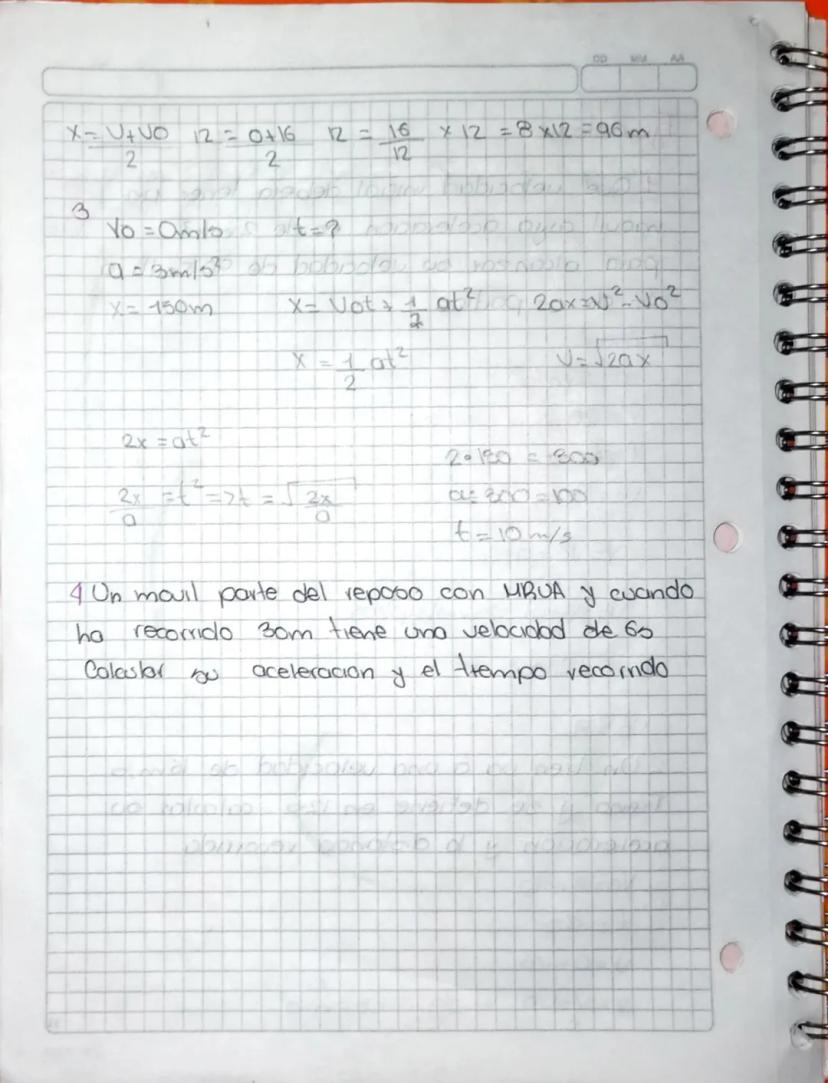 DD MM AA
X = V + VO / 2 12 = 0+16 / 2 12 = 16 / 12 x 12 = 8 x12 = 96m
3
Vo = 0m/s t=?
a = 3m/s²
x = 150m X = Vot + 1/2 at² 2ax = V² - Vo²
X = 1/2 at² V = √2ax
2x = at²
2•150 = 300
2x/a = t² => t = √2x/a
t = 10 m/s
4 Un movil parte del reposo con MRUA y cuando
ha recorrido 30m tiene una velocidad de 6s
Calcular su aceleracion y el tiempo recorrido